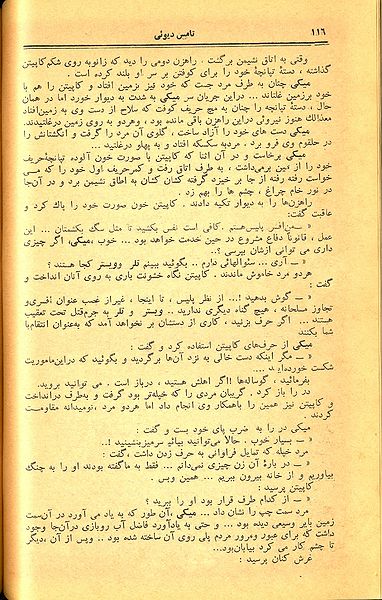 ۱۱۶ تامس دیوئی
وقتی به اتاق نشیمن برگشت . راهزن دومی را دید که زانو به روی شکم کاپیتن
گذاشته ، دستهٔ تپانچهٔ خود را برای کوفتن بر سر او بلند کرده است .
میکی چنان به طرف مرد جست که خود نیز بزمین افتاد و کاپیتن را هم با
خود برزمین غلتاند ... دراین جریان سر میکی به شدت به دیوار خورد اما در همان
حال ، دستهٔ تپانچه را چنان به مچ حریف کوفت که سلاح از دست وی به زمین افتاد
معذالک هنوز نیروئی دراین راهزن باقی مانده بود ، وهردو به روی زمین درغلتیدند.
میکی دست های خود را آزاد ساخت ، گلوی آن مرد را گرفت و انگشتانش را
در حلقوم وی فرو برد . مرد به سکسکه افتاد و به پهلو درغلتید ...
میکی برخاست و در آن اثنا که کاپیتن با صورت خون آلوده تپانچهٔ حریف
خود را از زمین برمی‌داشت ، به طرف اتاق رفت و کمر حریف اول خود را که می
خواست رفته رفته از جا بر خیزد گرفته کشان کشان به اطاق نشیمن برد و در آن‌جا
در نور خام چراغ ، چشم ها را بهم زد .
راهزن‌ها را به دیوار تکیه دادند . کاپیتن خون صورت خود را پاك کرد و
عاقبت گفت:
« ــ من افسر پلیس هستم . کافی است نفس بکشید تا مثل سگ بکشمتان ... این
عمل ، قانوناً دفاع مشروع در حین خدمت خواهد بود ... خوب ،میکی، اگر چیزی
داری می توانی ازشان بپرسی ؟..
« ــ آری ... سئوالهائی دارم .. بگوئید ببینم تلر ووبستر کجا هستند ؟
هردو مرد خاموش ماندند . کاپیتن نگاه خشونت باری به روی آنان انداخت و
گفت :
« ــ گوش بدهید !... از نظر پلیس ، تا اینجا ، غیراز غصب عنوان افسری‌و
تجاوز مسلحانه ، هیچ گناه دیگری ندارید .. وبستر و تلر به جرم‌قتل تحت تعقیب
هستند ... اگر حرف بزنید ، کاری از دستشان بر نخواهد آمد که به‌عنوان انتقام‌با
شما بکنند
میکی از حرف‌های کاپیتن استفاده کرد و گفت :
« ــ مگر اینکه دست خالی به نزد آن‌ها برگردید و بگوئید که دراین‌ماموریت
شکست خورده‌اید ....
بفرمائید ، گوساله‌ها !اگر اهلش هستید ، درباز است . می توانید بروید.
در را باز کرد . گریبان مردی را که خپله‌تر بود گرفت و به‌طرف درانداخت
و کاپیتن نیز همین را باهمکار وی انجام داد اما هردو مرد ،نومیدانه مقاومت
کردند .
میکی در را به ضرب پای خود بست و گفت :
« ــ بسیار خوب . حالا می‌توانید بیائیم سرمیزبنشینید !..
مرد خپله که تمایل فراوانی به حرف زدن داشت ، گفت:
« ــ در بارهٔ آن زن چیزی نمی‌دانم ... فقط به ما گفته بودند او را به چنگ
بیاوریم و از خانه بیرون ببریم ... همین وبس .
کاپیتن پرسید :
« ــ از کدام طرف قرار بود او را ببرید ؟
مرد سمت چپ را نشان داد ... میکی ،آن طور که به یاد می آورد در آن‌سمت
زمین بایر وسیعی دیده بود ... و حتی به یادآورد فاضل آب روبازی درآن‌جا وجود
داشت که برای عبور ومرور مردم پلی روی آن ساخته شده بود .. وپس از آن ،دیگر
تا چشم کار می کرد بیابان‌بود...
غرش کنان پرسید :